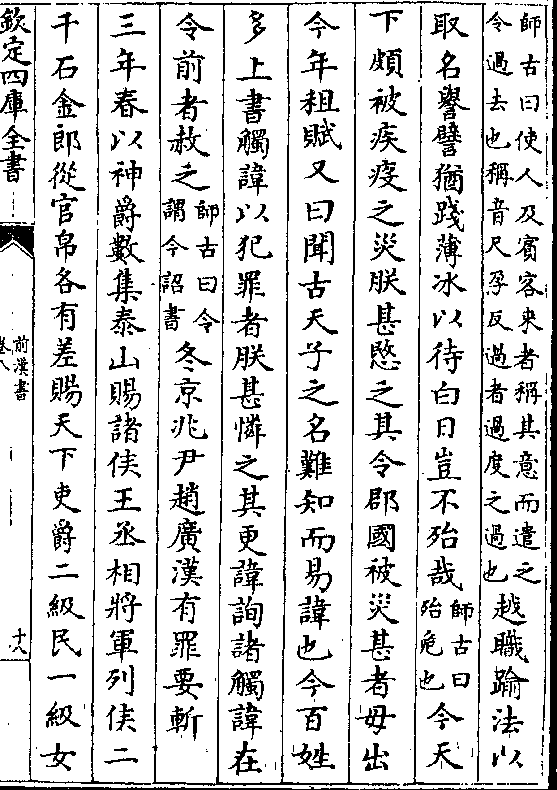 師古曰使人及賔客来者稱其意而遣之
令過去也稱音尺孕反過者過度之過也
越職踰法以
取名譽譬猶踐薄冰以待白日豈不殆哉
師古曰
殆危也
今天
下頗被疾疫之災朕甚愍之其令郡國被災甚者毋出
今年租賦又曰聞古天子之名難知而易諱也今百姓
多上書觸諱以犯罪者朕甚憐之其更諱詢諸觸諱在
令前者赦之
師古曰令
謂今詔書
冬京兆尹趙廣漢有罪要斬
三年春以神爵數集泰山賜諸侯王丞相將軍列侯二
千石金郎從官帛各有差賜天下吏爵二級民一級女
欽定四庫全書
前漢書
卷八
十八